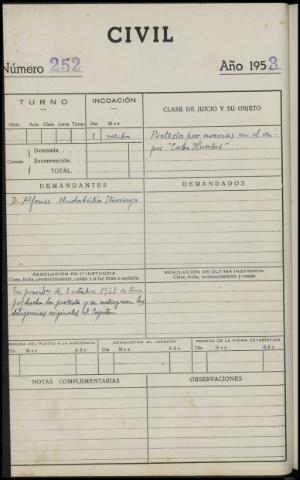 CIVIL
Número 252 Año 1953
TURNO INCOACIÓN CLASE DE JUICIO Y SU OBJETO
Núm. Acta Clase Letra Turno Día Mes
1 octubre Protesta por averias en el va-
por "Cabo Huertas"
Cuantía Demanda
Reconvención
TOTAL
DEMANDANTES DEMANDADOS
D. Alfonso Undabeitia Iturriaga
RESOLUCIÓN EN 1.ª INSTANCIA RESOLUCIÓN DE ÚLTIMA INSTANCIA
Clase, fecha, pronunciamiento, costas y si fue firme o apelada Clase, fecha, pronunciamiento y costas
En de 1 octubre se tiene
por hecha la protesta y se entregaron las
diligencias originales al Capitán
REMESA DEL PLEITO A LA AUDIENCIA DEVOLUCIÓN AL JUZGADO REMESA DE LA FICHA ESTADÍSTICA
Día Mes Año Día Mes Año Día Mes Año
NOTAS COMPLEMENTARIAS OBSERVACIONES